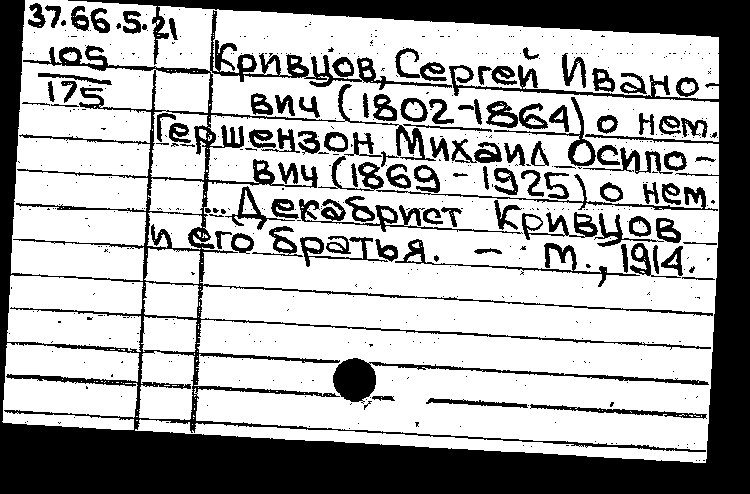 37.66.5.21
105
175
Кривцов, Сергей Ивано-
вич (1802-1864) о нем.
Гершензон, Михаил Осипо-
вич (1869-1925) о нем.
... Декабрист Кривцов
и его братья. - М., 1914.